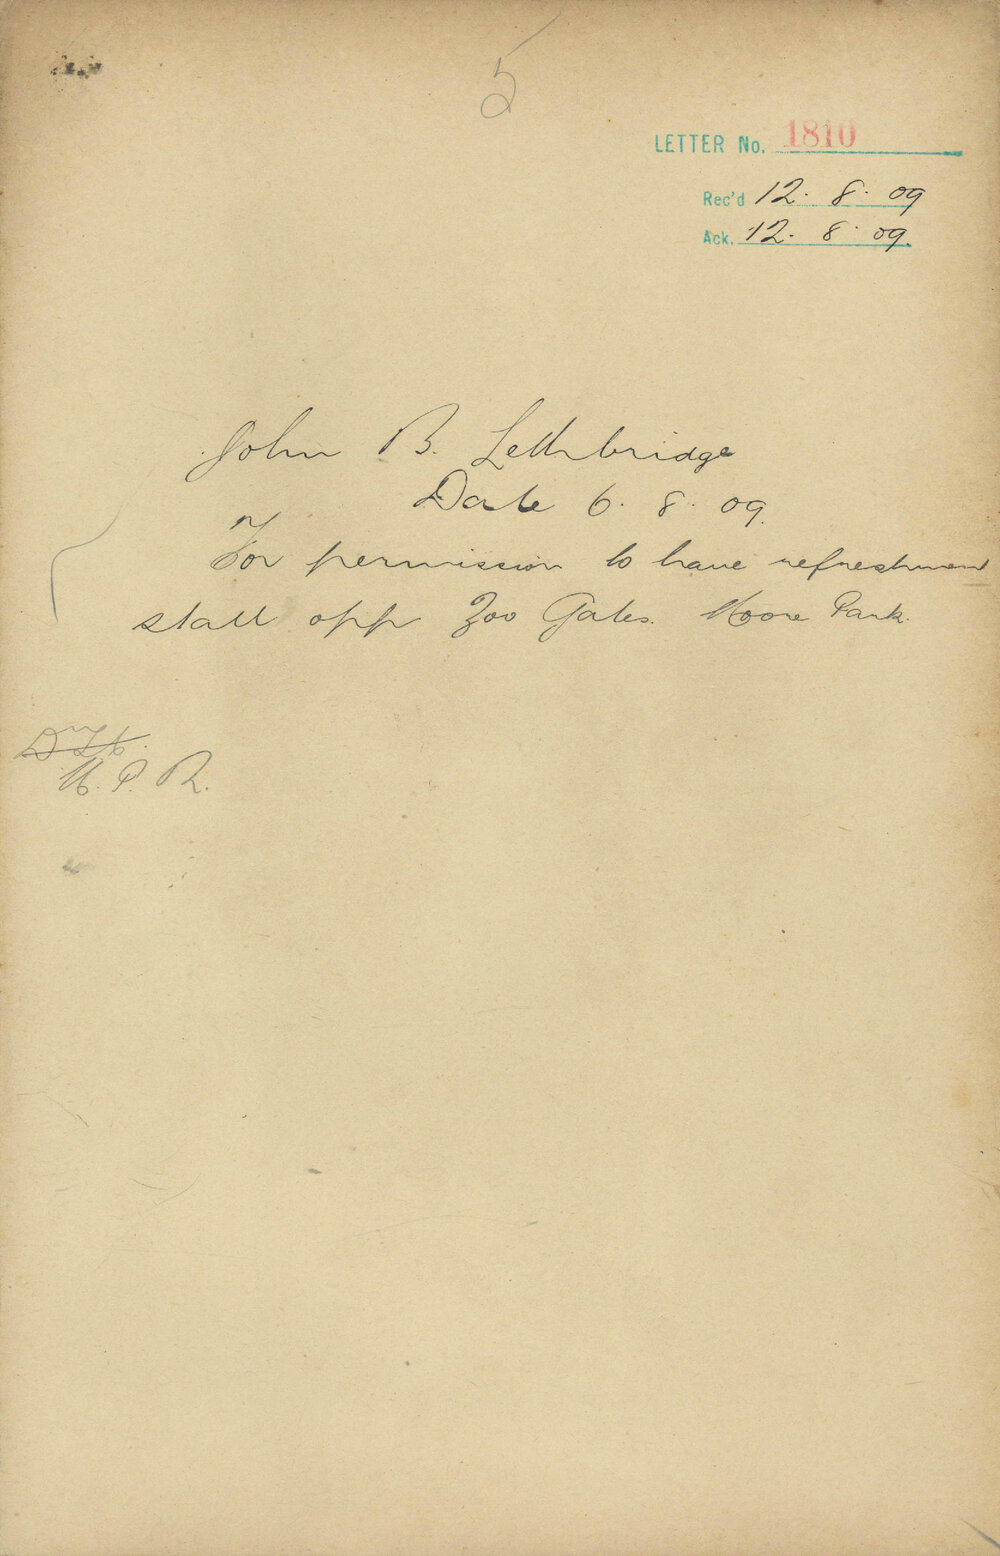 5
LETTER No. 1810
Rec'd 12. 8. 09
Ack. 12. 8. 09.
John B. Lethbridge
Date 6. 8. 09.
For permission to have refreshment
stall opp Zoo Gates. Moore Park.
M. P. R.